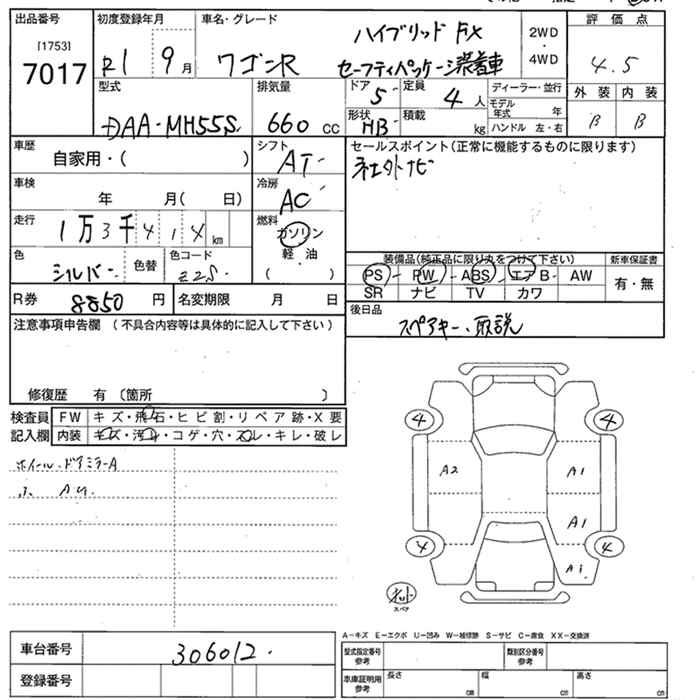 出品番号 初度登録年月 車名・グレード 評価点
[1753] ハイブリッド FX 2WD・4WD
7017 R1 9月 ワゴンR セーフティパッケージ装着車 4.5
型式 排気量 ドア 5 定員 4人 ディーラー・並行 外装 内装
DAA-MH55S 660cc 形状 HB 積載 kg モデル年式 年 B B
ハンドル 左・右
車歴 シフト セールスポイント(正常に機能するものに限ります)
自家用・( ) AT 社外ナビ
車検 年 月( 日) 冷房 AC
走行 1万3千414km 燃料 ガソリン
軽・油
( )
色 シルバー 色替 色コード Z2S
装備品(純正品に限り丸をつけて下さい) 新車保証書
PS PW ABS エアB AW 有・無
SR ナビ TV カワ
R券 8850円 名変期限 月 日
後日品 スペアキー、取説
注意事項申告欄 (不具合内容等は具体的に記入して下さい)
修復歴 有 (箇所 )
検査員 FW キズ・飛石・ヒビ割・リペア跡・X要
記入欄 内装 キズ・汚れ・コゲ・穴・スレ・キレ・破レ
ホイール・ドアミラーA
4 4
A2 A1
A1
4 4
A1
スペア
A-キズ E-エクボ U-凹み W-補修跡 S-サビ C-腐食 XX-交換済
車台番号 306012 型式指定番号 参考 類別区分番号 参考
登録番号 車庫証明用 参考 長さ cm 幅 cm 高さ cm